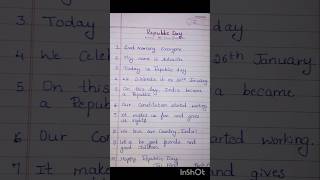 Republic Day
1. Good morning everyone
2. My name is
3. Today is Republic day
4. We Celebrate it on 26th January
5. On this day, India became
a Republic
6. Our Constitution started working.
7. It makes us fun and gives
us rights
8. We love our Country, India!
9. Let's be good friends and
good children
10. Happy Republic Day
3 Today
4 We Celeb
26th January.
5 On this
became
a Repub
6 Our Co
started working.
7 It make
and gives
InShOt